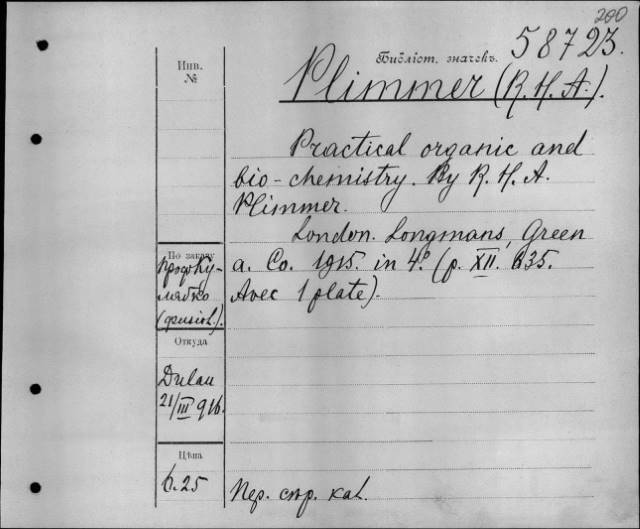 200
58723.
Инв. №
Библіот. значекъ.
Plimmer (R. H. A.).
Practical organic and
bio-chemistry. By R. H. A.
Plimmer.
London. Longmans, Green
a. Co. 1915. in 4.° (p. XII. 635.
Avec 1 plate).
По заказу
Проф. Ку-
лябко
(физіол.).
Откуда
Dulau
21/III 916.
Цѣна
6.25
Пер. стр. каł.